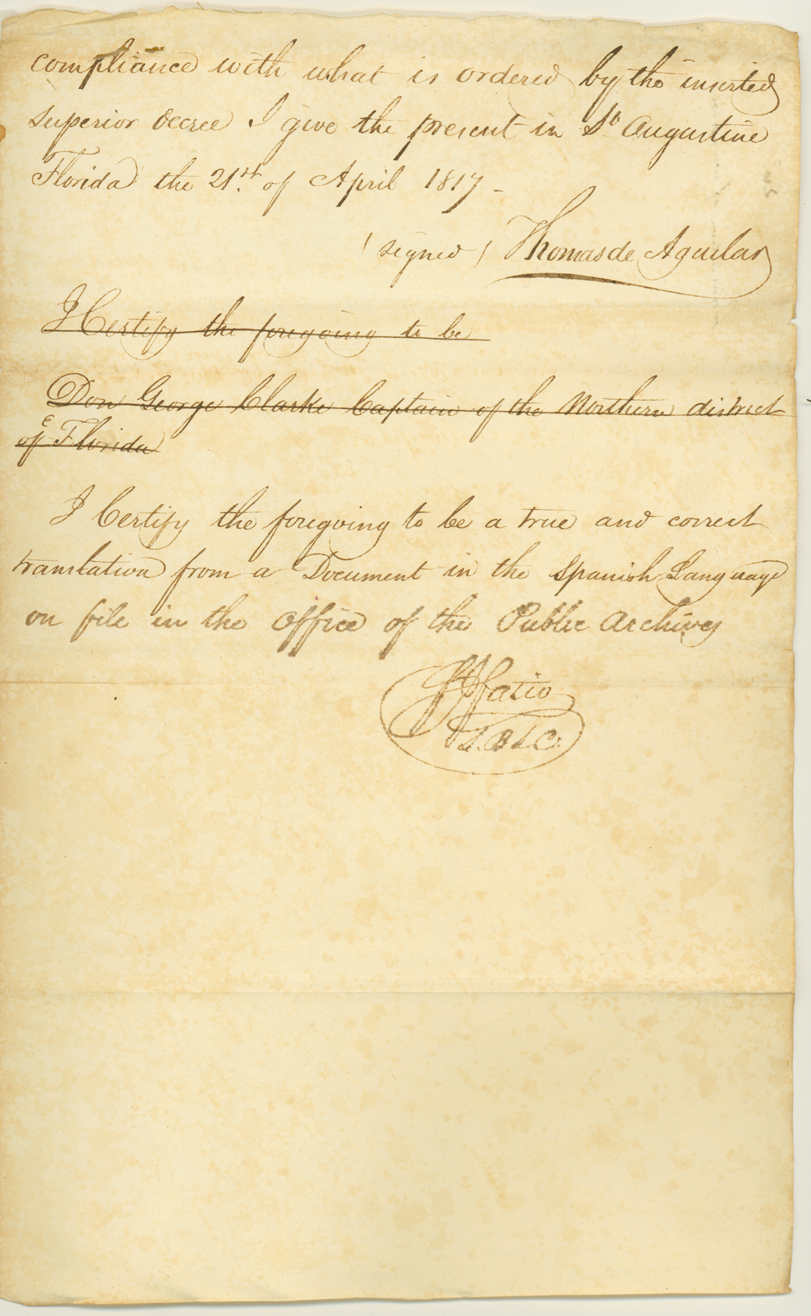 compliance with what is ordered by the inserted
superior decree I give the present in St. Augustine
Florida the 21st. of April 1817 -
(signed) Thomas de Aguilar
I Certify the foregoing to be
Don George Clarke Captain of the Northern district
of E Florida
I Certify the foregoing to be a true and correct
translation from a Document in the Spanish Language
on file in the office of the Public Archives
Fatio